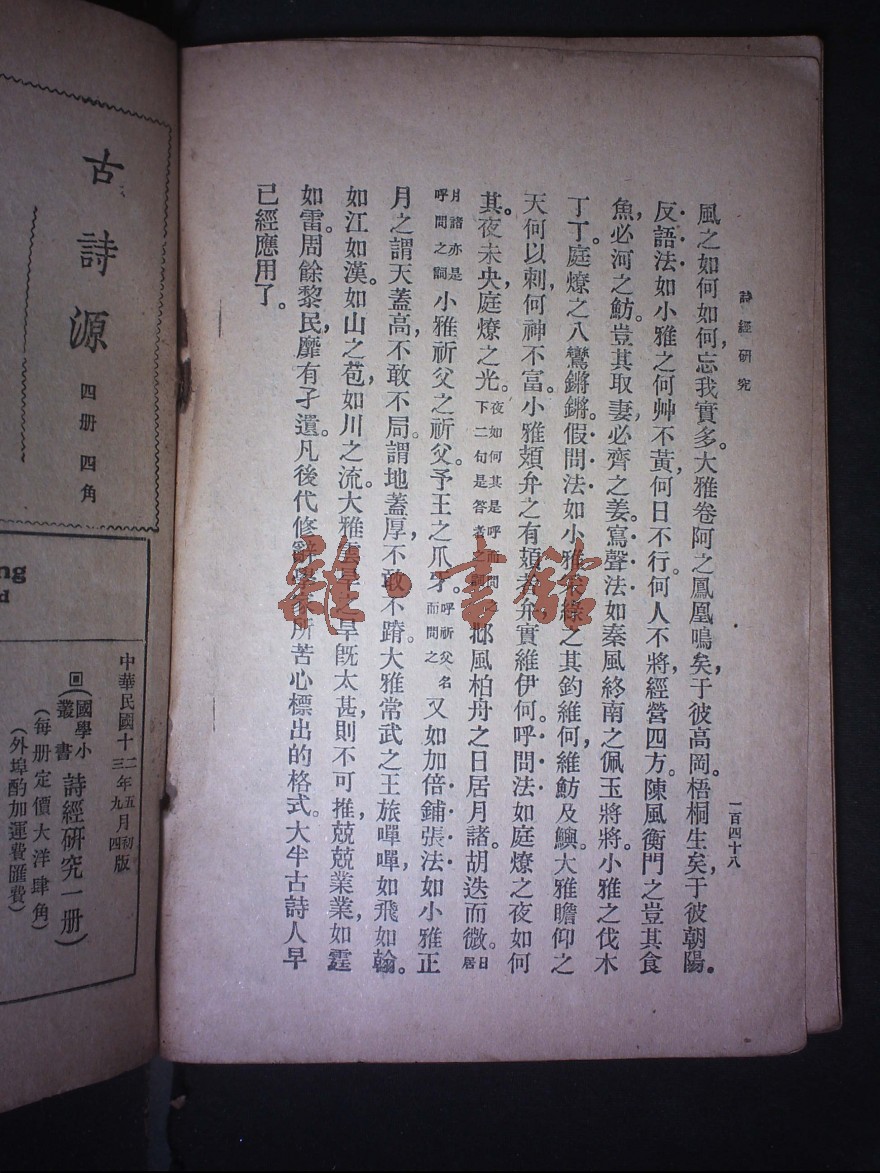 詩經研究
一百四十八
風之如何如何，忘我實多。大雅卷阿之鳳凰鳴矣，于彼高岡。梧桐生矣，于彼朝陽。
反語法如小雅之何艸不黃，何日不行。何人不將，經營四方。陳風衡門之豈其食
魚，必河之魴。豈其取妻，必齊之姜。寫聲法如秦風終南之佩玉將將。小雅之伐木
丁丁。庭燎之八鸞鏘鏘。假問法如小雅采綠之其釣維何，維魴及鱮。大雅瞻仰之
天何以刺，何神不富。小雅頍弁之有頍者弁，實維伊何。呼問法如庭燎之夜如何
其。夜未央，庭燎之光。夜如何其是呼而問之下二句是答者之詞邶風柏舟之日居月諸。胡迭而微。日居
月諸亦是呼問之詞小雅祈父之祈父。予王之爪牙。呼祈父名而問之又如加倍鋪張法如小雅正
月之謂天蓋高，不敢不局。謂地蓋厚，不敢不蹐。大雅常武之王旅嘽嘽，如飛如翰。
如江如漢。如山之苞，如川之流。大雅雲旱既太甚，則不可推，兢兢業業，如霆
如雷。周餘黎民，靡有孑遺。凡後代修辭所苦心標出的格式。大半古詩人早
已經應用了。
古詩源
四册 四角
ng
d
中華民國十二年五月初版
十三年九月四版
回(國學小叢書)詩經研究一册)
(每册定價大洋肆角)
(外埠酌加運費匯費)
雜·書館